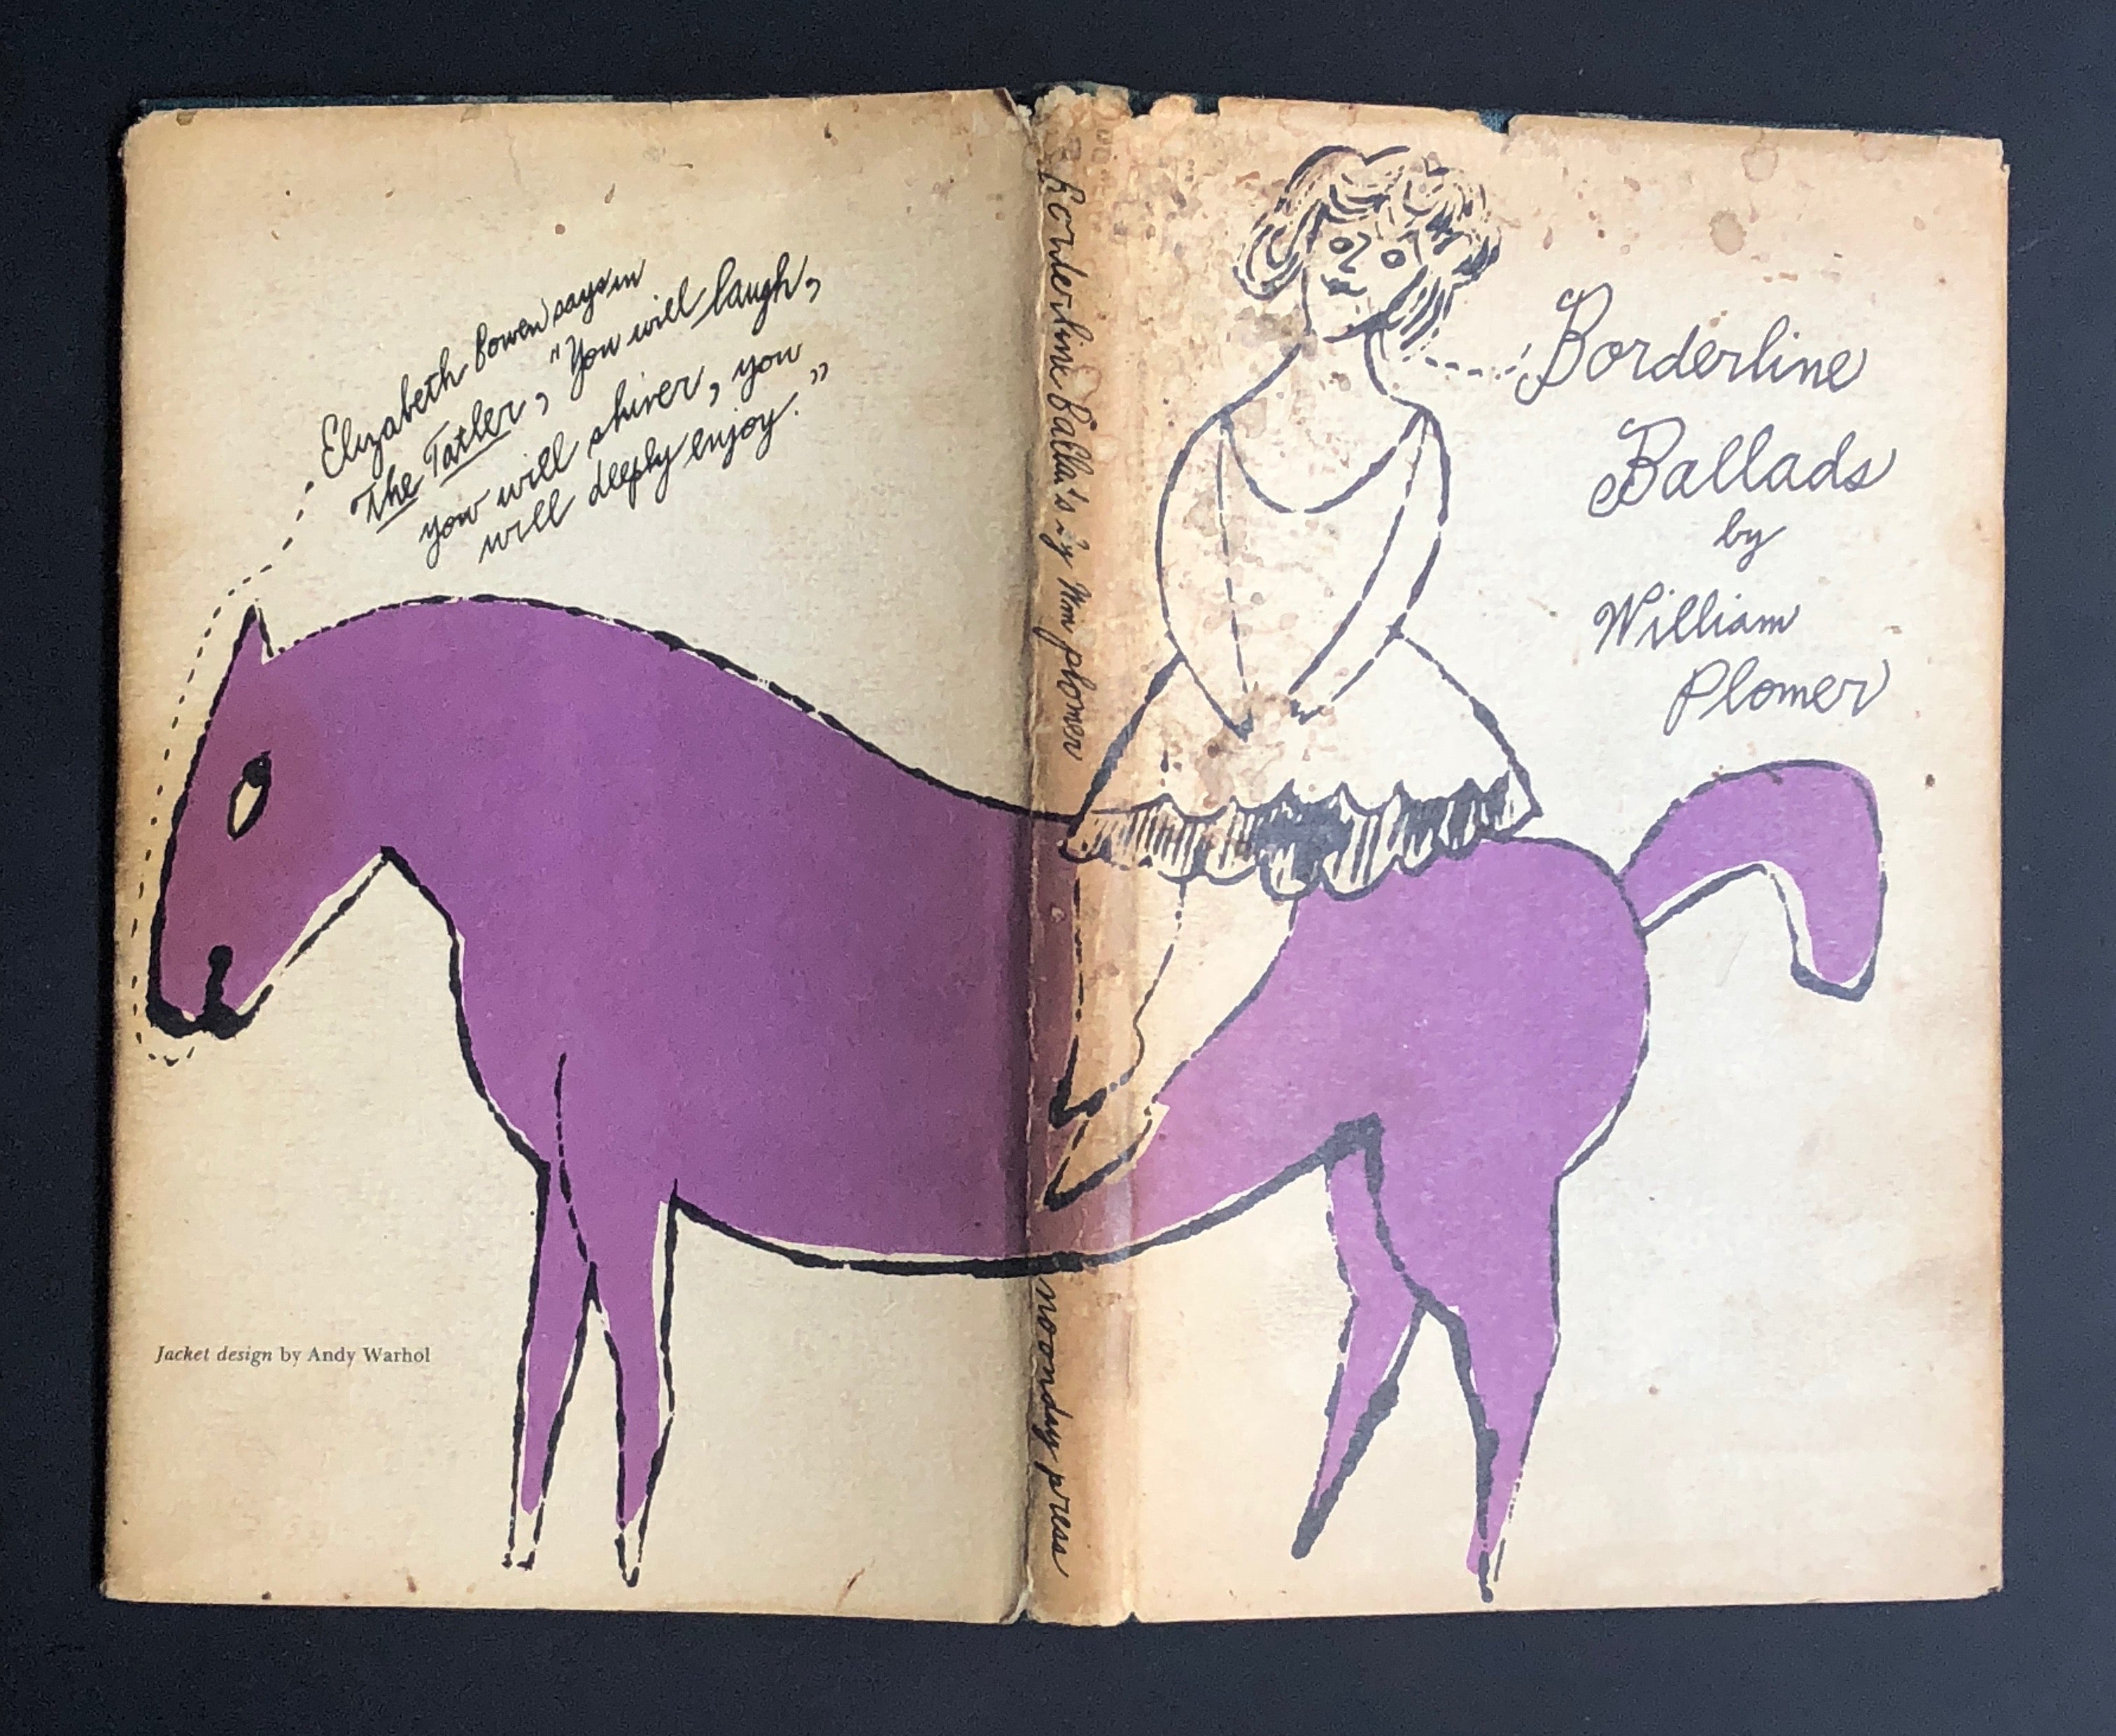 Elizabeth Bowen says in
The Tatler, "You will laugh,
you will shiver, you
will deeply enjoy."
Jacket design by Andy Warhol
Borderline Ballads by Wm Plomer
noonday press
Borderline
Ballads
by
William
Plomer